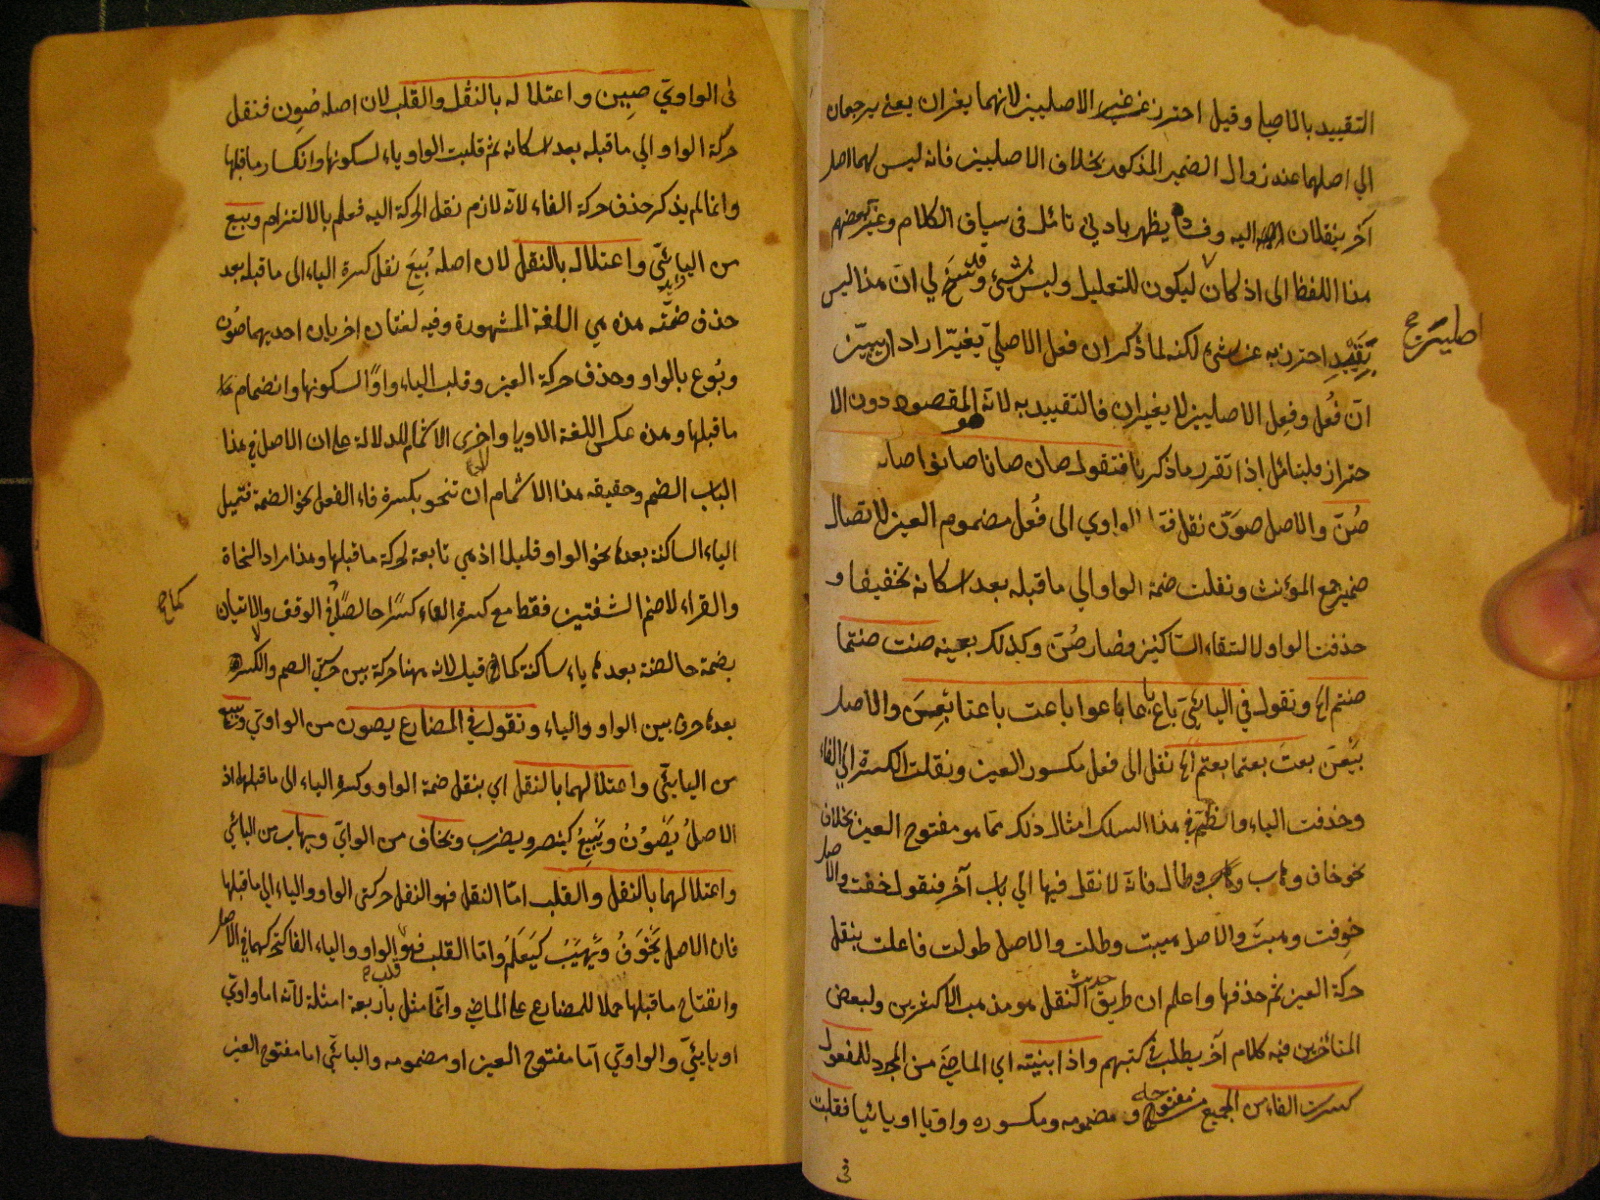 التقييد بالاصلي وقيل احترز عن غير الاصليين لانهما يغيران يعني يرجعان
الى اصلهما عند زوال الضمير المذكور بخلاف الاصليين فانه ليس لهما اصل
آخر ينقلان اليه وفساده يظهر بادنى تأمل في سياق الكلام وغير بعضهم
هذا اللفظ الى اذ كان ليكون للتعليل وليس بشيء وقد سنح لي ان هذا ليس
بقيد احترز به عن شيء لكنه لما ذكر ان فعل الاصلي تغيّر اراد ان يبيّن
انّ فُعل وفِعل الاصليين لا يغيران فالتقييد به لانه المقصود دون الا
حتراز فليتأمل اذا تقرر ما ذكرنا فتقول صان صانا صانوا صانت
صُنّ والاصل صوَنّ نقل الواوي الى فُعل مضموم العين لاتصال
ضمير جمع المؤنث ونقلت ضمة الواو الى ما قبله بعد اسكانه تخفيفا و
حذفت الواو لالتقاء الساكنين فصار صُنّ وكذلك بعينه صنت صنتما
صنتم الخ وتقول في اليائي باع باعا باعوا باعت باعتا بِعنَ والاصل
بَيَعْنَ بعت بعتما بعتم الخ نقل الى فعل مكسور العين ونقلت الكسرة الى الفاء
وحذفت الياء وانظم في هذا السلك امثال ذلك مما هو مفتوح العين بخلاف
نحو خاف وهاب وطال فانه لا نقل فيها الى باب آخر فتقول خفت والاصل
خوِفت وهبت والاصل هيبت وطلت والاصل طولت فاعلت بنقل
حركة العين ثم حذفها واعلم ان حديث طريق النقل هو مذهب الاكثرين ولبعض
المتأخرين فيه كلام آخر يطلب في كتبهم واذا بنيته اي الماضي من المجرد للمفعول
كسرت الفاء من الجميع مفتوحه ومضمومه ومكسوره واويا او يائيا فقلت
في
اصليين صح
في الواوي صِين واعتلاله بالنقل والقلب لان اصله صُوِن فنقل
حركة الواو الى ما قبله بعد اسكانه ثم قلبت الواو ياء لسكونها وانكسار ما قبلها
وانما لم يذكر حذف حركة الفاء لانه لازم نقل الحركة اليه فعلم بالالتزام وبيع
من اليائي واعتلاله بالنقل لان اصله بُيِعَ نقل كسرة الياء الى ما قبله بعد
حذف ضمته هذه هي اللغة المشهورة وفيه لغتان اخريان احديهما صُون
وبُوع بالواو وحذف حركة العين وقلب الياء واوًا لسكونها وانضمام
ما قبلها وهذه عكس اللغة الاولى واخرى الاشمام للدلالة على ان الاصل في هذا
الباب الضم وحقيقة هذا الاشمام ان تنحو بكسرة فاء الفعل نحو الضمة فتميل
الياء الساكنة بعدها نحو الواو قليلا اذ هي تابعة لحركة ما قبلها وهذا مراد النحاة
والقراء لا ضم الشفتين فقط مع كسرة الفاء كسرًا خالصًا في الوقف ولا الاتيان
بضمة خالصة بعدها ياء ساكنة كما قيل لانه ههنا حركة بين حركتي الضم والكسر
بعدها حرف بين الواو والياء وتقول في المضارع يصون من الواوي ويبيع
من اليائي واعتلالهما بالنقل اي بنقل ضمة الواو وكسرة الياء الى ما قبلهما اذ
الاصل يَصْوُنُ ويَبْيِعُ كينصر ويضرب ويخاف من الواوي ويهاب من اليائي
واعتلالهما بالنقل والقلب امّا النقل فهو النقل حركتي الواو والياء الى ما قبلها
فان الاصل يَخْوَفُ ويَهْيَبُ كيَعلَمُ وامّا القلب فهو قلب الواو والياء الفا لتحركهما في الاصل
وانفتاح ما قبلها حملا للمضارع على الماضي وانما مثل باربعة امثلة لانه اما واوي
او يائي والواوي امّا مفتوح العين او مضمومه واليائي اما مفتوح العين